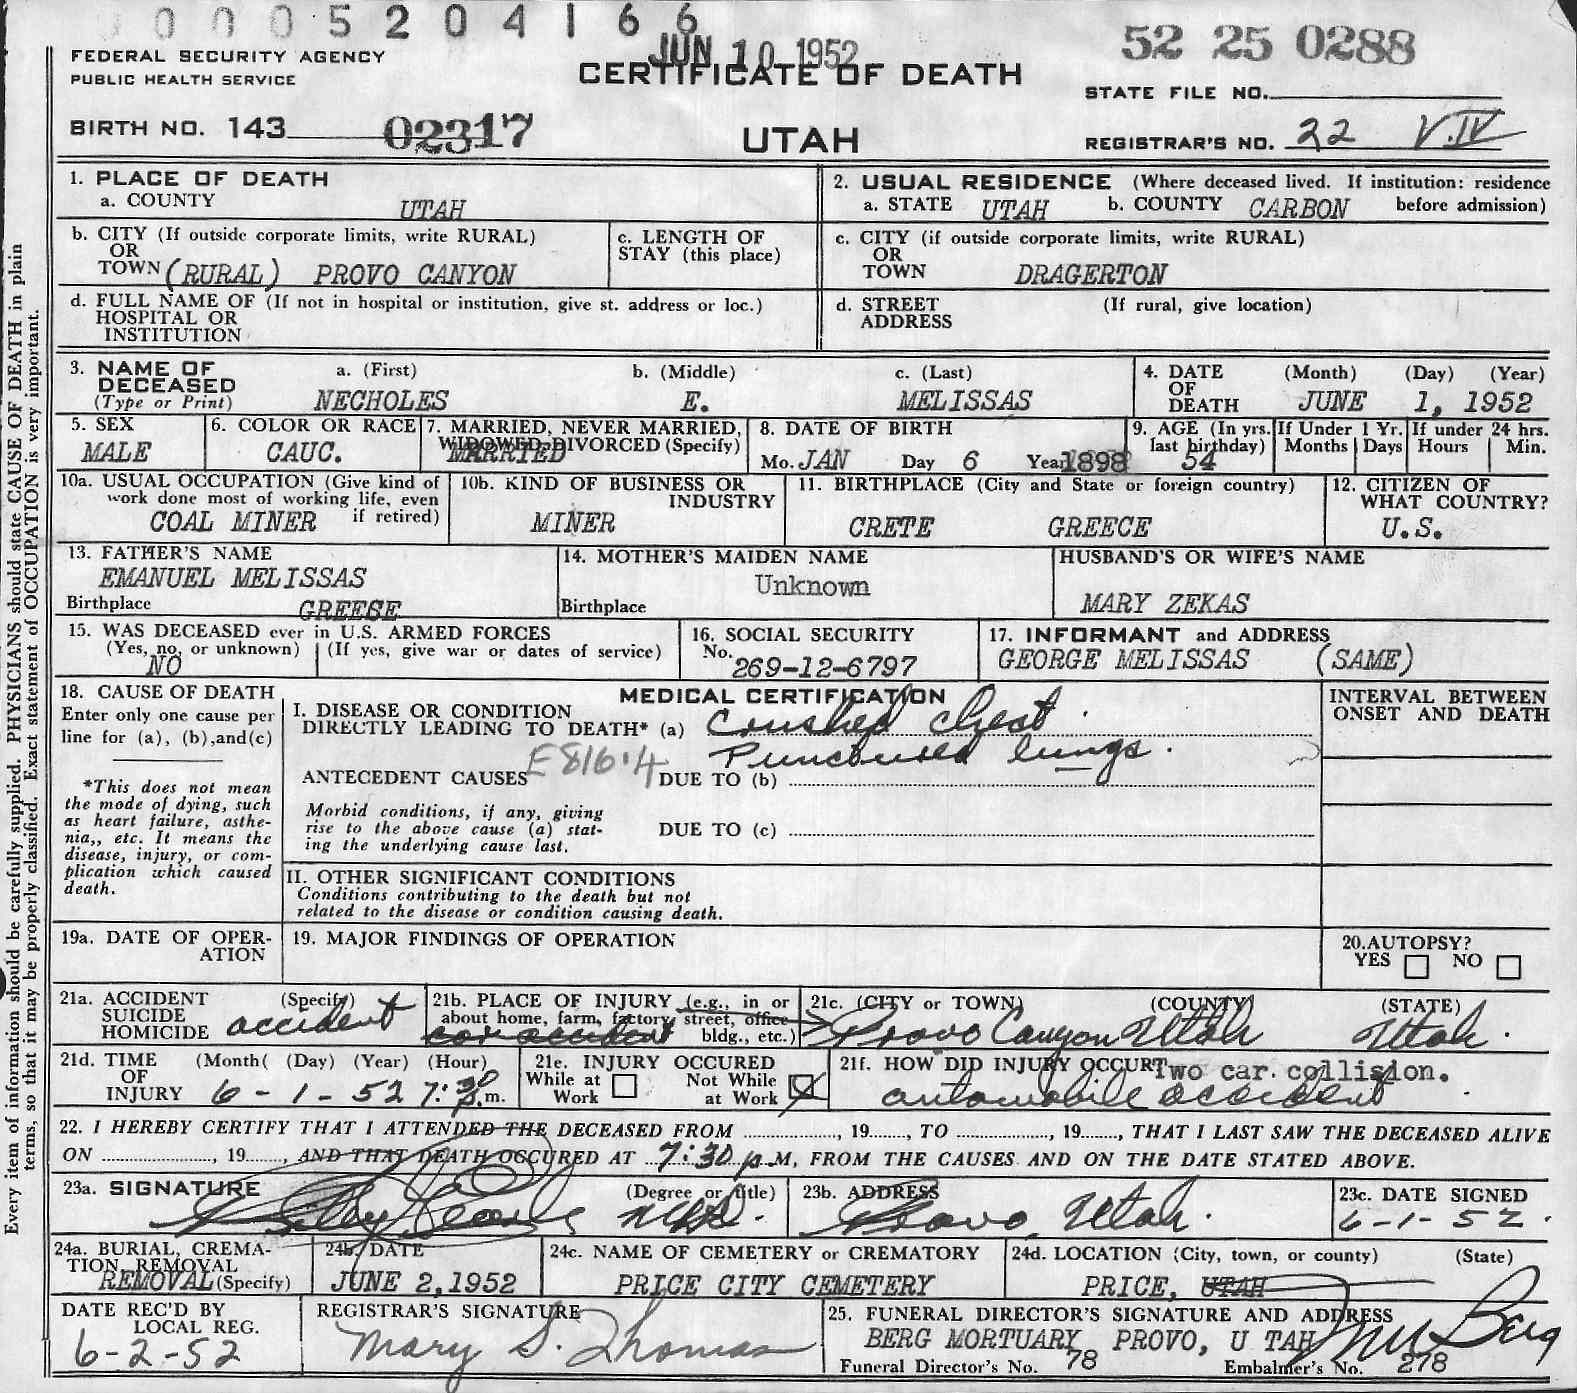 0005204166
JUN 10 1952
52 25 0288
FEDERAL SECURITY AGENCY
PUBLIC HEALTH SERVICE
CERTIFICATE OF DEATH
STATE FILE NO.
BIRTH NO. 143 02317
UTAH
REGISTRAR'S NO. 22 V.IV
1. PLACE OF DEATH
a. COUNTY UTAH
2. USUAL RESIDENCE (Where deceased lived. If institution: residence before admission)
a. STATE UTAH b. COUNTY CARBON
b. CITY (If outside corporate limits, write RURAL)
OR
TOWN (RURAL) PROVO CANYON
c. LENGTH OF
STAY (this place)
c. CITY (if outside corporate limits, write RURAL)
OR
TOWN DRAGERTON
d. FULL NAME OF (If not in hospital or institution, give st. address or loc.)
HOSPITAL OR
INSTITUTION
d. STREET (If rural, give location)
ADDRESS
3. NAME OF DECEASED
(Type or Print)
a. (First) NECHOLES
b. (Middle) E.
c. (Last) MELISSAS
4. DATE OF DEATH
(Month) (Day) (Year)
JUNE 1, 1952
5. SEX
MALE
6. COLOR OR RACE
CAUC.
7. MARRIED, NEVER MARRIED,
WIDOWED, DIVORCED (Specify)
MARRIED
8. DATE OF BIRTH
Mo. JAN Day 6 Year 1898
9. AGE (In yrs. last birthday)
54
If Under 1 Yr.
Months Days
If under 24 hrs.
Hours Min.
10a. USUAL OCCUPATION (Give kind of
work done most of working life, even
if retired)
COAL MINER
10b. KIND OF BUSINESS OR
INDUSTRY
MINER
11. BIRTHPLACE (City and State or foreign country)
CRETE GREECE
12. CITIZEN OF
WHAT COUNTRY?
U.S.
13. FATHER'S NAME
EMANUEL MELISSAS
Birthplace GREESE
14. MOTHER'S MAIDEN NAME
Unknown
Birthplace
HUSBAND'S OR WIFE'S NAME
MARY ZEKAS
15. WAS DECEASED ever in U.S. ARMED FORCES
(Yes, no, or unknown) (If yes, give war or dates of service)
NO
16. SOCIAL SECURITY
No. 269-12-6797
17. INFORMANT and ADDRESS
GEORGE MELISSAS (SAME)
18. CAUSE OF DEATH
Enter only one cause per
line for (a), (b),and(c)
*This does not mean
the mode of dying, such
as heart failure, asthe-
nia,, etc. It means the
disease, injury, or com-
plication which caused
death.
MEDICAL CERTIFICATION
I. DISEASE OR CONDITION
DIRECTLY LEADING TO DEATH* (a) Crushed Chest.
Punctured lungs.
E816.4
ANTECEDENT CAUSES DUE TO (b)
Morbid conditions, if any, giving
rise to the above cause (a) stat-
ing the underlying cause last.
DUE TO (c)
INTERVAL BETWEEN
ONSET AND DEATH
II. OTHER SIGNIFICANT CONDITIONS
Conditions contributing to the death but not
related to the disease or condition causing death.
19a. DATE OF OPER-
ATION
19. MAJOR FINDINGS OF OPERATION
20.AUTOPSY?
YES NO
21a. ACCIDENT (Specify)
SUICIDE
HOMICIDE accident
21b. PLACE OF INJURY (e.g., in or
about home, farm, factory, street, office
bldg., etc.)
car accident
21c. (CITY or TOWN) (COUNTY) (STATE)
Provo Canyon Utah Utah.
21d. TIME (Month( (Day) (Year) (Hour)
OF
INJURY 6-1-52 7:30 p.m.
21e. INJURY OCCURED
While at Work
Not While at Work
21f. HOW DID INJURY OCCUR? Two car collision.
automobile accident
22. I HEREBY CERTIFY THAT I ATTENDED THE DECEASED FROM ........, 19....., TO ........, 19....., THAT I LAST SAW THE DECEASED ALIVE
ON ........, 19....., AND THAT DEATH OCCURED AT 7:30 p.M, FROM THE CAUSES AND ON THE DATE STATED ABOVE.
23a. SIGNATURE (Degree or title)
23b. ADDRESS
Provo, Utah.
23c. DATE SIGNED
6-1-52.
24a. BURIAL, CREMA-
TION, REMOVAL
REMOVAL (Specify)
24b. DATE
JUNE 2,1952
24c. NAME OF CEMETERY or CREMATORY
PRICE CITY CEMETERY
24d. LOCATION (City, town, or county) (State)
PRICE, UTAH
DATE REC'D BY
LOCAL REG.
6-2-52
REGISTRAR'S SIGNATURE
Mary S. Thomas
25. FUNERAL DIRECTOR'S SIGNATURE AND ADDRESS
BERG MORTUARY PROVO, U TAH
Berg
Funeral Director's No. 78 Embalmer's No. 278
Every item of information should be carefully supplied. PHYSICIANS should state CAUSE OF DEATH in plain
terms, so that it may be properly classified. Exact statement of OCCUPATION is very important.